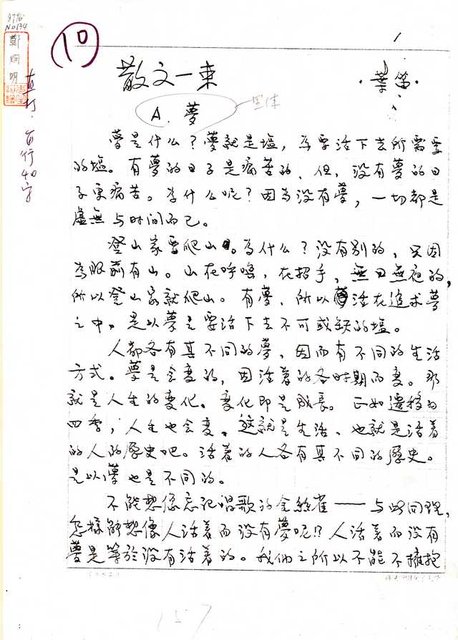 10
1
散文一束
·葉笛·
A. 夢
黑体
直打·每行40字
夢是什么?夢就是塩,為要活下去所需要
的塩。有夢的日子是痛苦的,但,没有夢的日
子更痛苦。為什么呢?因為没有夢,一切都是
虛無与时间而已。
登山家要爬山。為什么?没有别的,只因
為眼前有山。山在呼喚,在招手,無日無夜的,
所以登山家就爬山。有夢,所以活在追求夢
之中,是以夢是要活下去不可或缺的塩。
人都各有其不同的夢,因而有不同的生活
方式。夢是会変的,因活着的各时期而変。那
就是人生的変化。変化即是成長。正如遞移的
四季,人生也会変,這就是生活,也就是活着
的人的歷史吧。活着的人各有其不同的歷史。
是以夢也是不同的。
不能想像忘记唱歌的金絲雀——与此同理,
怎樣能想像人活着而没有夢呢!?人活着而没有
夢是等於没有活着的。我們之所以不能不擁抱
157